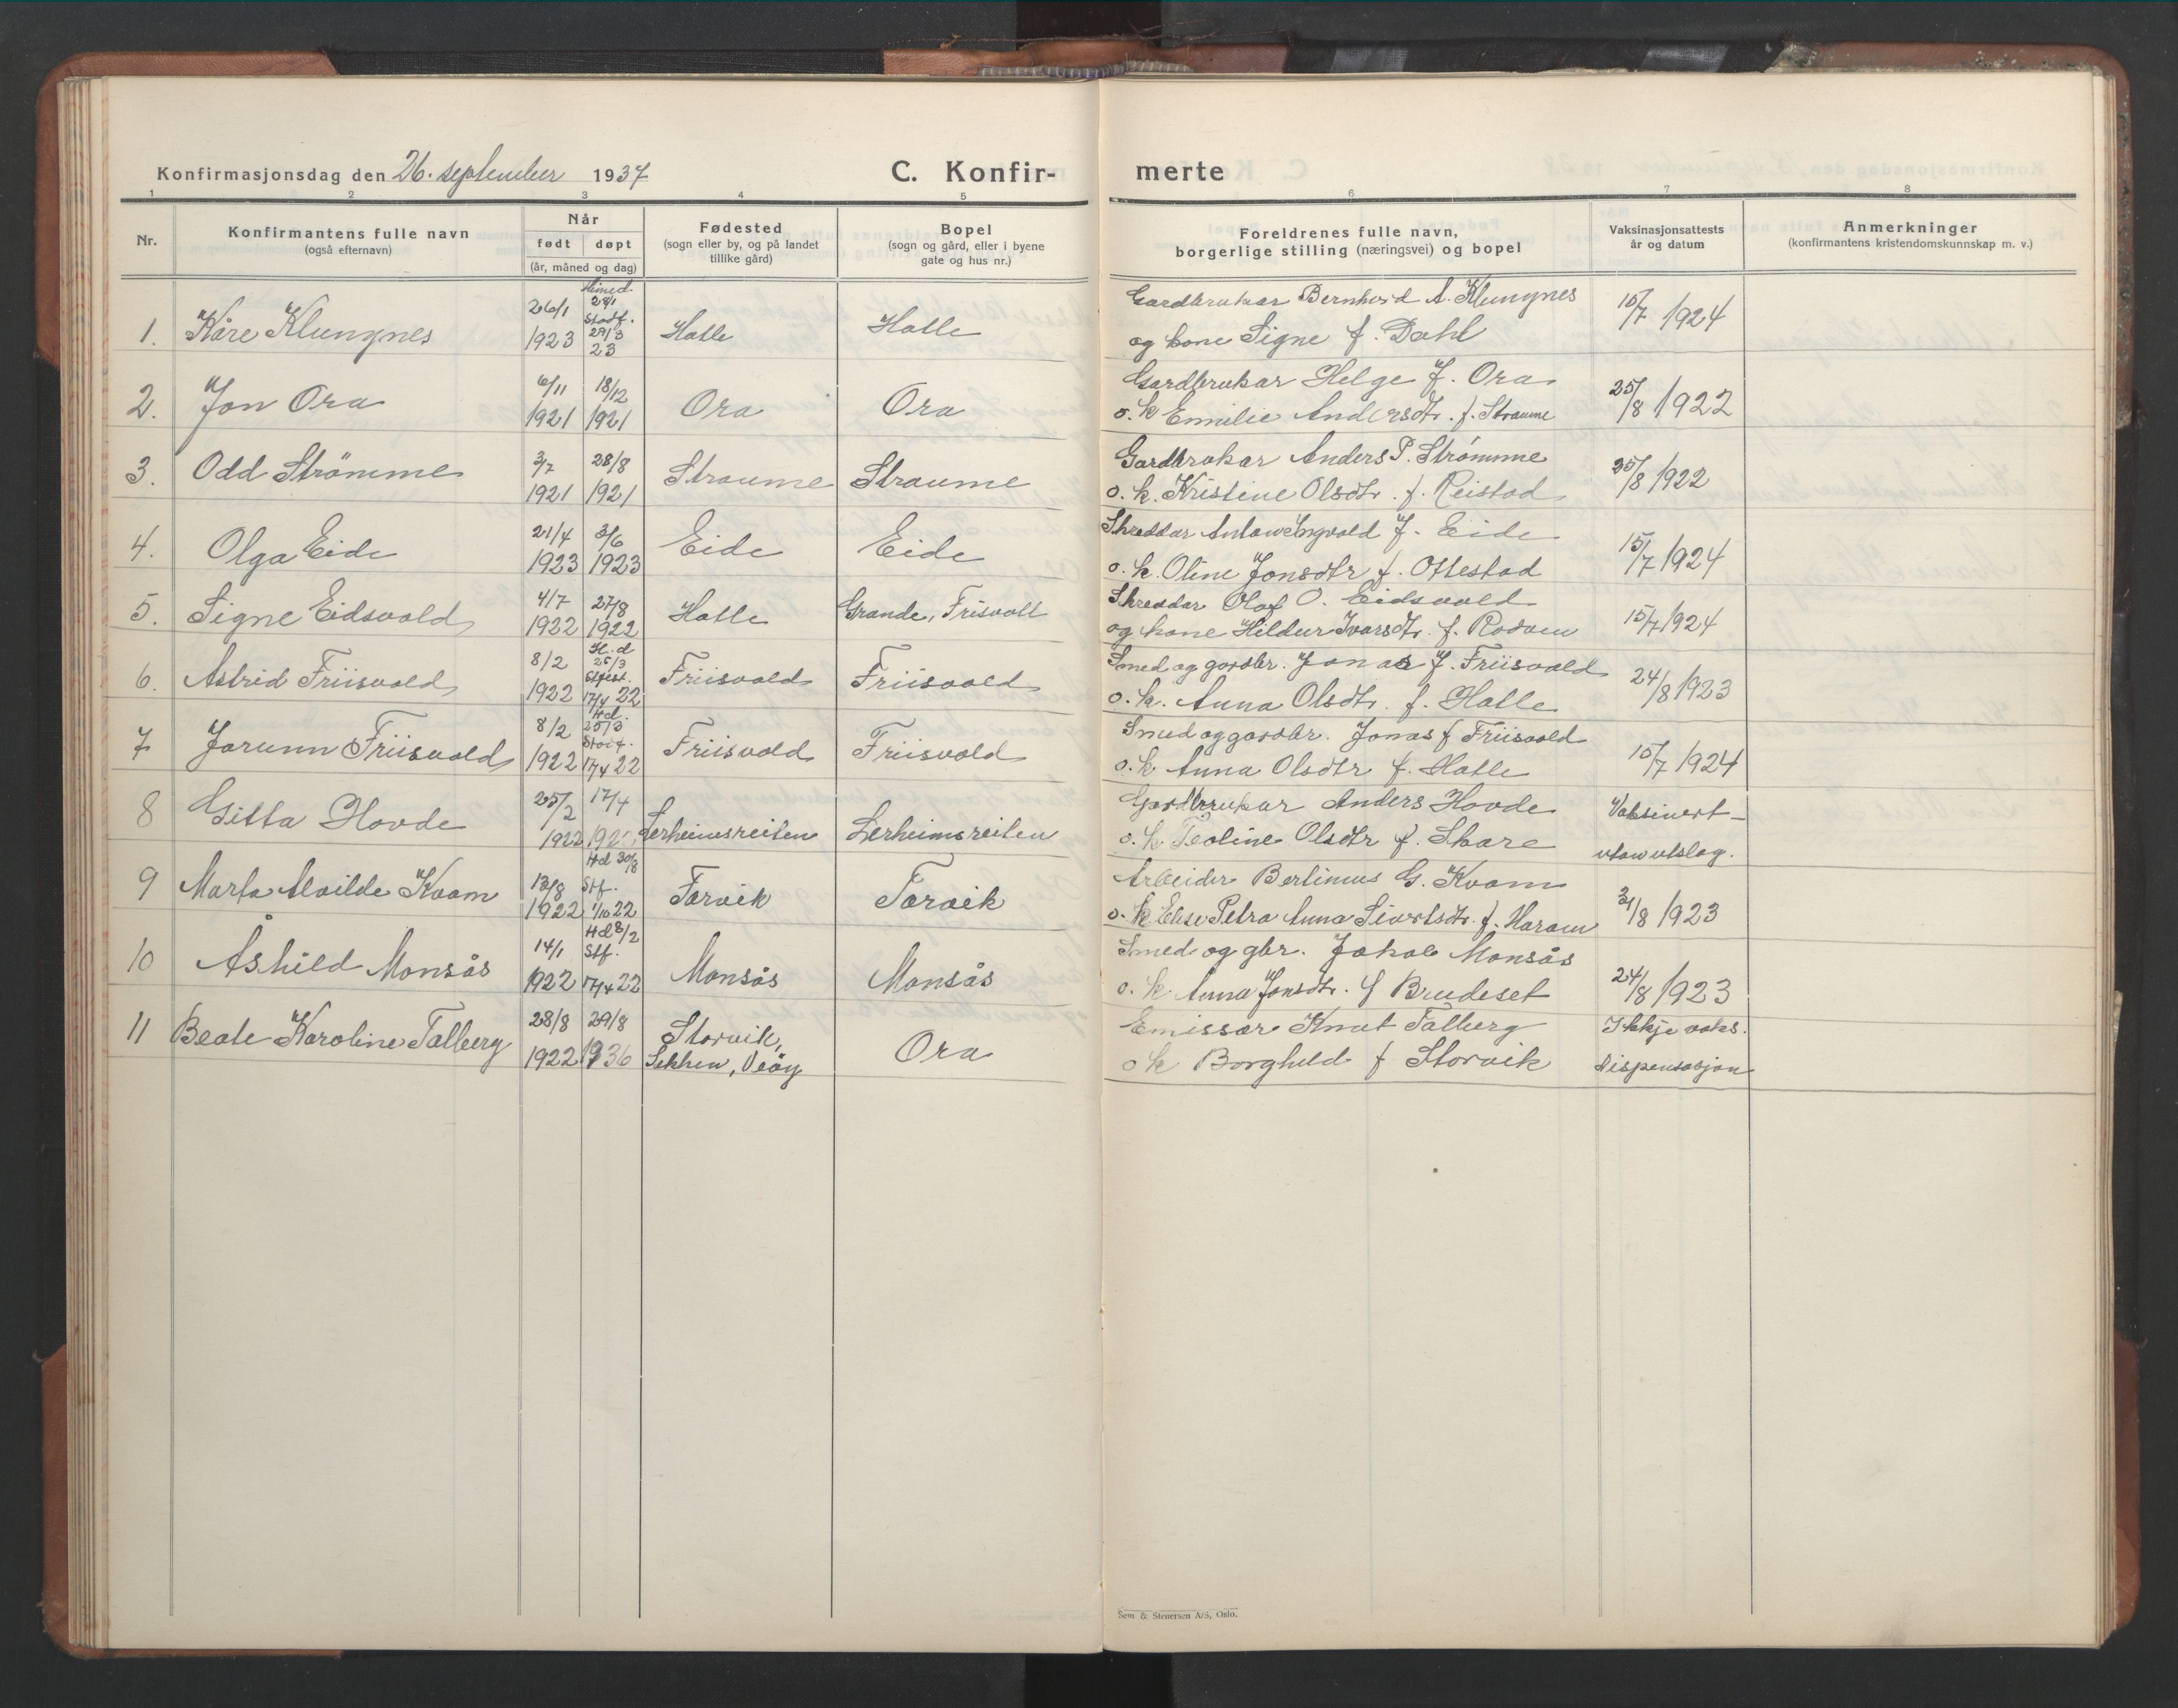 Konfirmasjonsdag den 26. september 1937
C. Konfir-
merte
1 2 3 4 5 6 7 8
Nr.
Konfirmantens fulle navn
(også efternavn)
Når
født døpt
(år, måned og dag)
Fødested
(sogn eller by, og på landet
tillike gård)
Bopel
(sogn og gård, eller i byene
gate og hus nr.)
Foreldrenes fulle navn,
borgerlige stilling (næringsvei) og bopel
Vaksinasjonsattests
år og datum
Anmerkninger
(konfirmantens kristendomskunnskap m. v.)
1. Kåre Klungnes 26/1 1923 Himed. 28/1 Stadf. 29/3 23 Hatle Hatle
Gardbrukar Bernhard A. Klungnes
og kone Signe f. Dahl
15/7 1924
2. Jon Ora 6/11 1921 18/12 1921 Ora Ora
Gardbrukar Helge J. Ora
o. k Emilie Andersdtr. f. Straume
25/8 1922
3. Odd Strömme 3/7 1921 28/8 1921 Straume Straume
Gardbrukar Anders P. Strömme
o. k. Kristine Olsdtr. f. Reistad
25/8 1922
4. Olga Eide 21/4 1923 3/6 1923 Eide Eide
Skreddar Anton Ingvald J. Eide
o. k. Oline Jonsdtr f. Ottestad
15/7 1924
5. Signe Eidsvold 4/7 1922 27/8 1922 Hatle Grande, Frisvoll
Skreddar Olaf O. Eidsvold
og kone Hildur Ivarsdtr. f. Rødven
15/7 1924
6. Astrid Friisvold 8/2 1922 H. d 25/3 Stfest. 17/4 22 Friisvold Friisvold
Smed og gardbr. Jonas J. Friisvold
o. k. Anna Olsdtr. f. Hatle
24/8 1923
7 Jorunn Friisvold 8/2 1922 Hd. 25/3 Stadf. 17/4 22 Friisvold Friisvold
Smed og gardbr. Jonas J Friisvold
o. k Anna Olsdtr f. Hatle
15/7 1924
8 Gitta Hovde 25/2 1922 17/4 Lerheimsreiten Lerheimsreiten
Gardbrukar Anders Hovde
o. k. Teoline Olsdtr f. Skare
Vaksinert
utan utslag.
9 Marta Alvilde Kvam 13/8 1922 Hd 30/8 Stf. 1/10 22 Torvik Torvik
Arbeider Bertinus G. Kvam
o. k Elise Petra Anna Sivertsdtr. f. Haram
21/8 1923
10 Åshild Monsås 14/1 1922 Hd 8/2 Stf. 17/4 22 Monsås Monsås
Smed og gbr. Jakob Monsås
o. k. Anna Jonsdtr. f Brudeset
24/8 1923
11 Beate Karoline Talberg 28/8 1922 29/8 1936 Storvik, Sekken, Veöy Ora
Emissær Knut Talberg
o k Borghild f Storvik
Ikkje vaks.
dispensasjon
Sem & Stenersen A/S, Oslo.